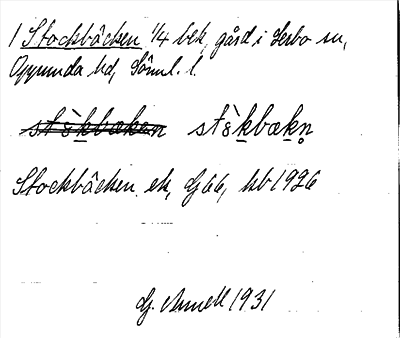 1 Stockbäcken 1/4 bek, gård i Lerbo sn,
Oppunda hd, Söml. l.
stɛ̀kbæken stɛ̀kbækn̥
Stockbäcken ek, G66, kb 1926
G. Annell 1931